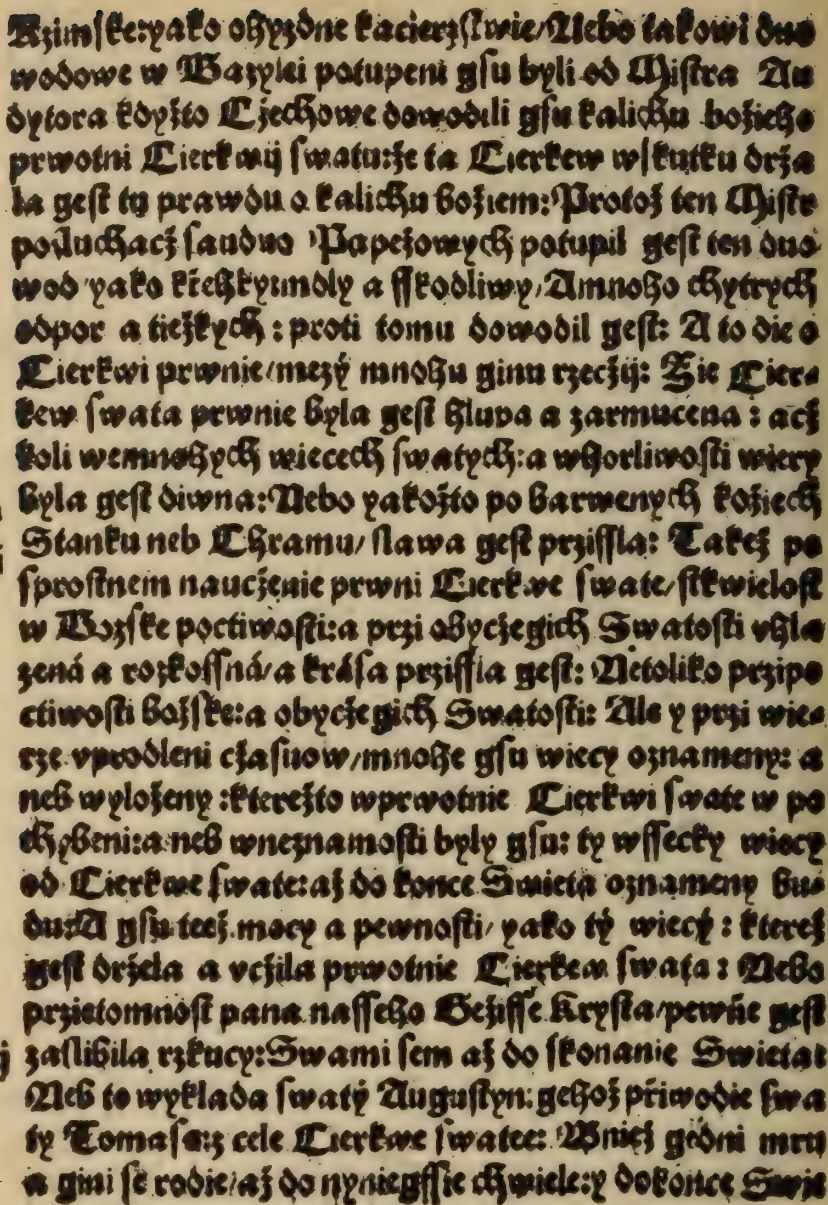 Rzimſke: yako ohyzdne kacierzſtwie/ Nebo takowi duo
wodowe w Bazylei potupeni gſu byli od Miſtra Au
dytora kdyžto Czechowe dowodili gſu kalichu božieho
prwotni Cierkwij ſwatu: že ta Cierkew wſkutku drža
la geſt tu prawdu o kalichu božiem: Protož ten Miſtr
poſluchacž ſauduo Papežowych potupil geſt ten duo
wod yako křehky mdly a ſſkodliwy/ A mnoho chytrych
odpor a tiežkych: proti tomu dowodil geſt: A to die o
Cierkwi prwnie/ mezy mnohu ginu rzecžij: Zie Cier-
kew ſwata prwnie byla geſt hlupa a zarmucena: acž
koli wemnohych wiecech ſwatych: a whorliwoſti wiery
byla geſt diwna: Nebo yakožto po barwenych kožiech
Stanku neb Chramu/ ſlawa geſt prziſſla: Takež po
ſproſtnem naucženie prwni Cierkwe ſwate/ ſtkwieloſt
w Bozſke poctiwoſti: a przi obyčegich Swatoſti vhla
zená a rozkoſſná/ a kráſa prziſſla geſt: Netoliko przipo
ctiwoſti božſke: a obyčegich Swatoſti: Ale y przi wie-
rze vprodleni cžaſuow/ mnohe gſu wiecy oznameny: a
neb wyloženy: kterežto wprwotnie Cierkwi ſwate w po
chybeni: a neb wneznamoſti byly gſu: ty wſſecky wiecy
od Cierkwe ſwate: až do konce Swieta oznameny bu-
du: A gſu teež mocy a pewnoſti/ yako tý wiecý: kterež
geſt držela a vcžila prwotnie Cierkew ſwata: Nebo
przietomnoſt pana naſſeho Gežiſſe Kryſta/ pewñe geſt
zaſlibila rzkucy: Swami ſem až do ſkonanie Swieta:
Neb to wyklada ſwatý Auguſtyn: gehož přiwodie ſwa
ty Tomaſs: z cele Cierkwe ſwatee: Wniež gedni mru
a gini ſe rodie/ až do nyniegſſie chwiele: y dokonce Swie